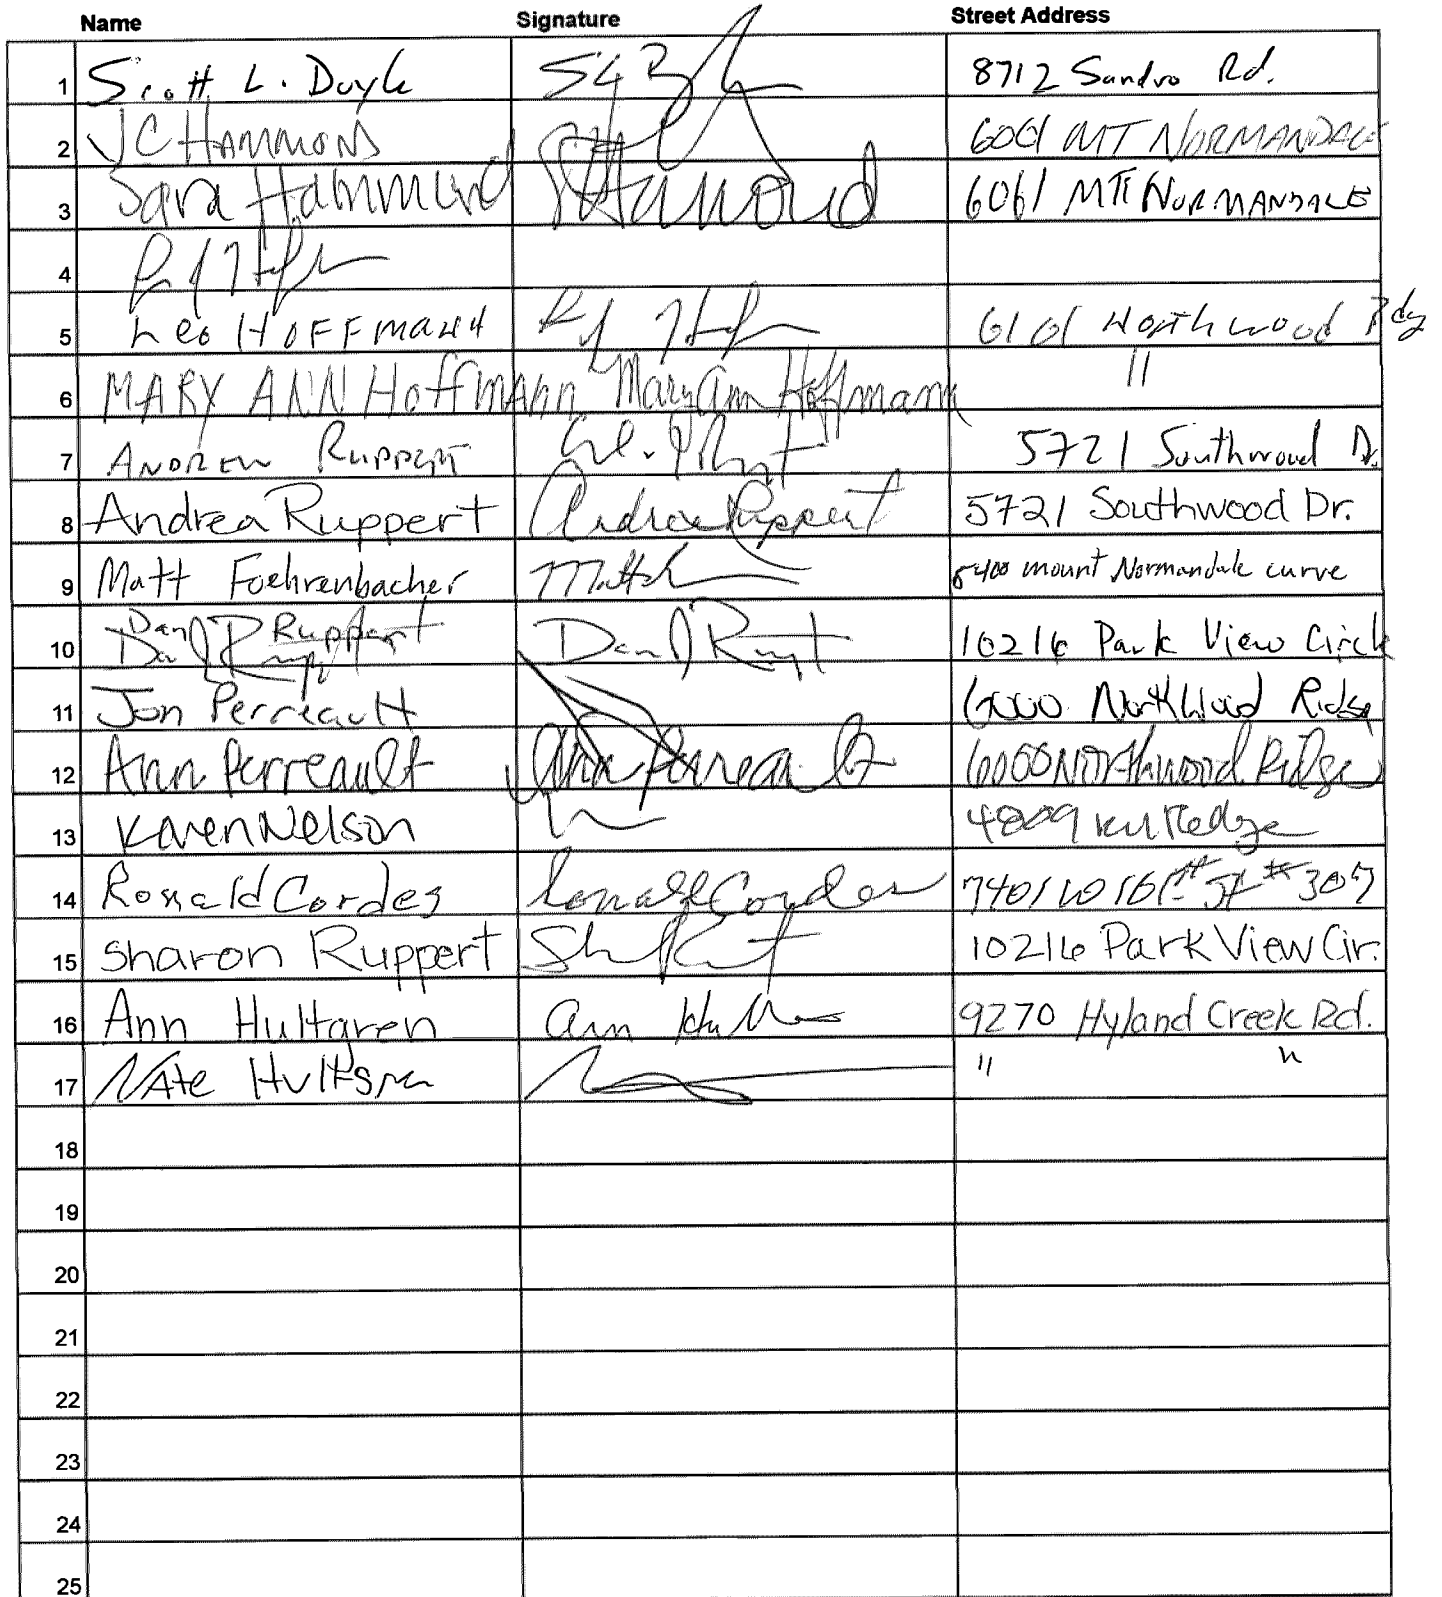 Name Signature Street Address
1 Scott L. Doyle 8712 Sandro Rd.
2 JC HAMMONS 6061 MT NORMANDALE
3 Sara Hammond 6061 MT NORMANDALE
4
5 Leo HOFFMANN 6101 Northwood Rdg
6 MARY ANN HoffMAnn Mary Ann Hoffmann "
7 ANDREW RUPPERT 5721 Southwood Dr.
8 Andrea Ruppert Andrea Ruppert 5721 Southwood Dr.
9 Matt Foehrenbacher 8400 mount Normandale curve
10 Dan Ruppert Dan J Rupt 10216 Park View Circle
11 Jon Perreault 6000 Northwood Ridge
12 Ann Perreault Ann Perreault 6000 Northwood Ridge
13 Karen Nelson 4809
14 Ronald Cordes Ronald Cordes 7401 W 101st St #307
15 Sharon Ruppert 10216 Park View Cir.
16 Ann Hultgren Ann 9270 Hyland Creek Rd.
17 NAte Hultgren " "
18
19
20
21
22
23
24
25